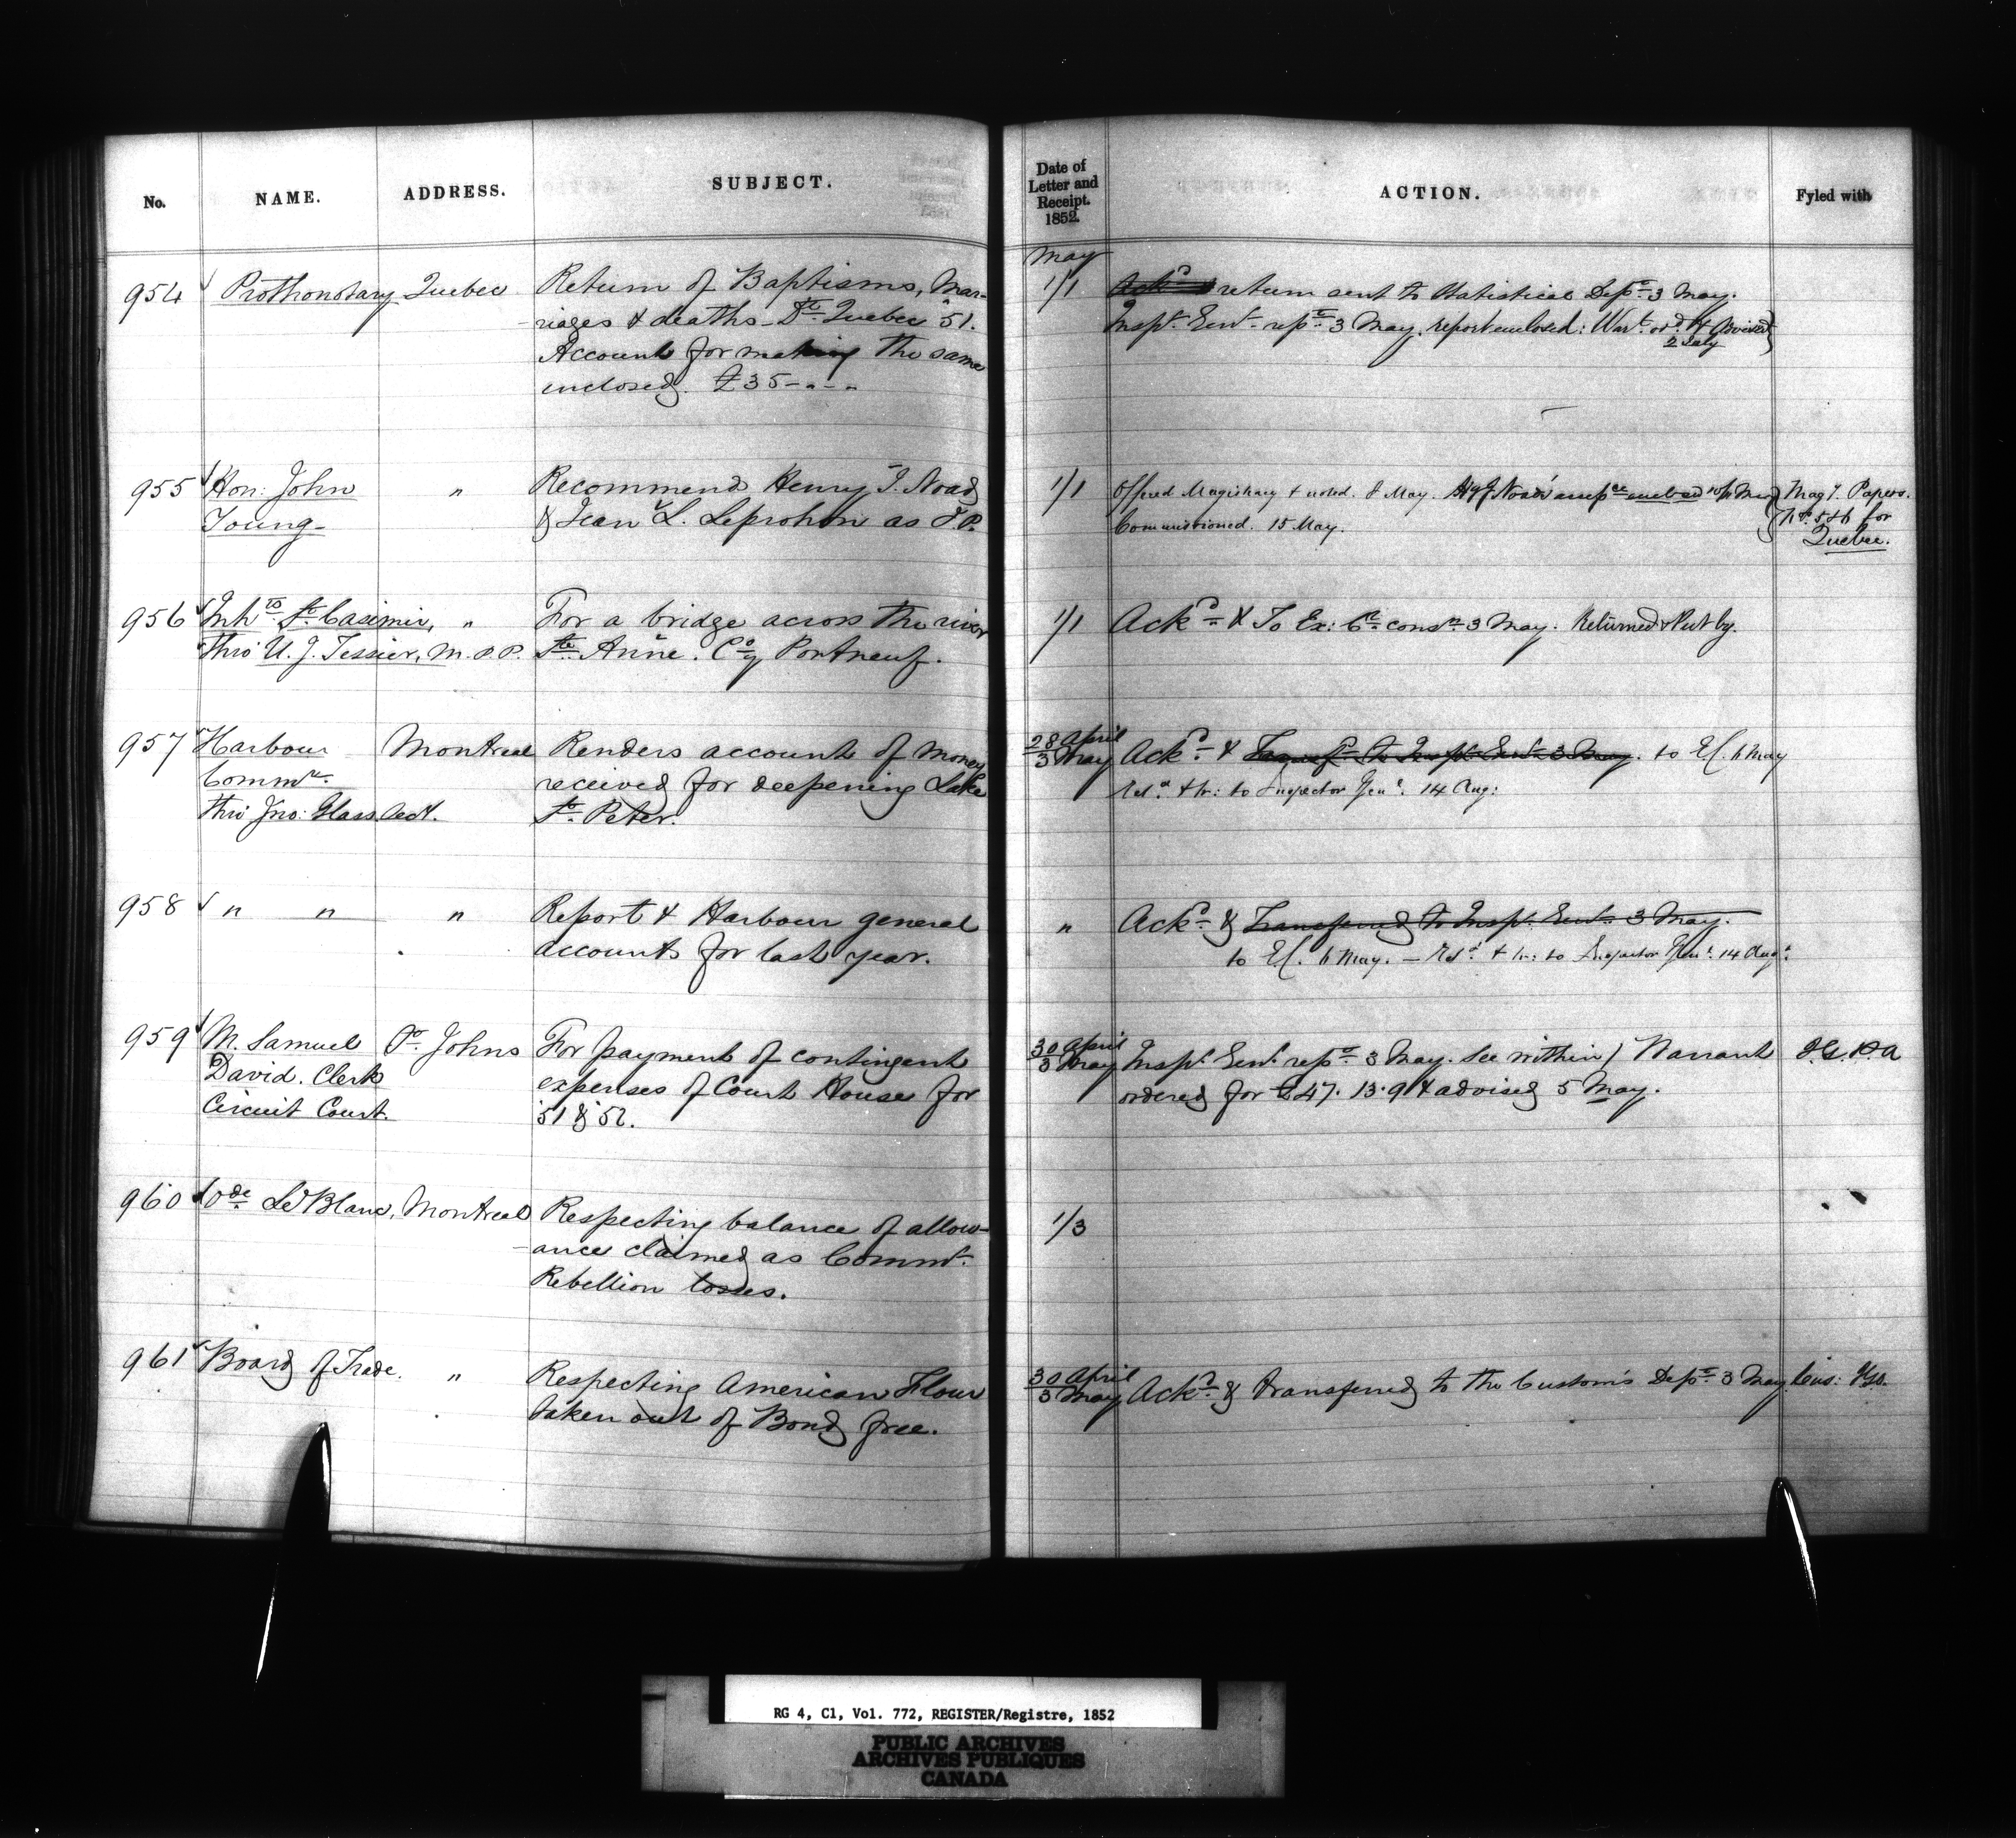 No. NAME. ADDRESS. SUBJECT.
Date of Letter and Receipt. 1852. ACTION. Fyled with
May
954 Prothonotary Quebec Return of Baptisms, Mar-
riages & deaths - Dt. Quebec '51.
Account for making the same
enclosed. £35 - " - "
1/1 Ackd. & return sent to Statistical Dept. 3 May.
Inspr. Genl. rept. 3 May. report enclosed: Wart. ord. & advised
2 July
955 Hon: John Young " Recommend Henry J. Noad
& Jean L. Leprohon as J.P.
1/1 Offered Magistracy & noted. 8 May.
Commissioned. 15 May.
Magy. Papers.
No. 5 & 6 for
Quebec.
956 Inhts. St. Casimir, " For a bridge across the river
thro' U. J. Tessier, M.P.P. Ste. Anne. Coy. Portneuf.
1/1 Ackd. & To Ex: Cl. consn. 3 May. Returned & Put by.
957 Harbour Montreal Renders account of money
Commrs. received for deepening Lake
thro' Jno: Glass Sect. St. Peter.
28 April
3 May Ackd. & Transfd. to Inspr. Genl. 3 May. to EC. 6 May
Retd. & tr: to Inspector Genl. 14 Aug:
958 " " " Report & Harbour general
accounts for last year.
" Ackd. & Transferred to Inspr. Genl. 3 May.
to EC. 6 May. — Retd. & tr: to Inspector Genl. 14 Augt.
959 M. Samuel St. Johns For payment of contingent
David. Clerk expenses of Court House for
Circuit Court. '51 & '52.
30 April
3 May Inspr. Genl. repd. 3 May. See within / Warrant
ordered for £47. 13. 9 & advised 5 May.
960 Ode. LeBlanc, Montreal Respecting balance of allow-
ance claimed as Commr.
Rebellion losses.
1/3
961 Board of Trade. " Respecting American Flour
taken out of Bond free.
30 April
3 May Ackd. & transferred to the Custom's Dept. 3 May.
RG 4, C1, Vol. 772, REGISTER/Registre, 1852
PUBLIC ARCHIVES
ARCHIVES PUBLIQUES
CANADA